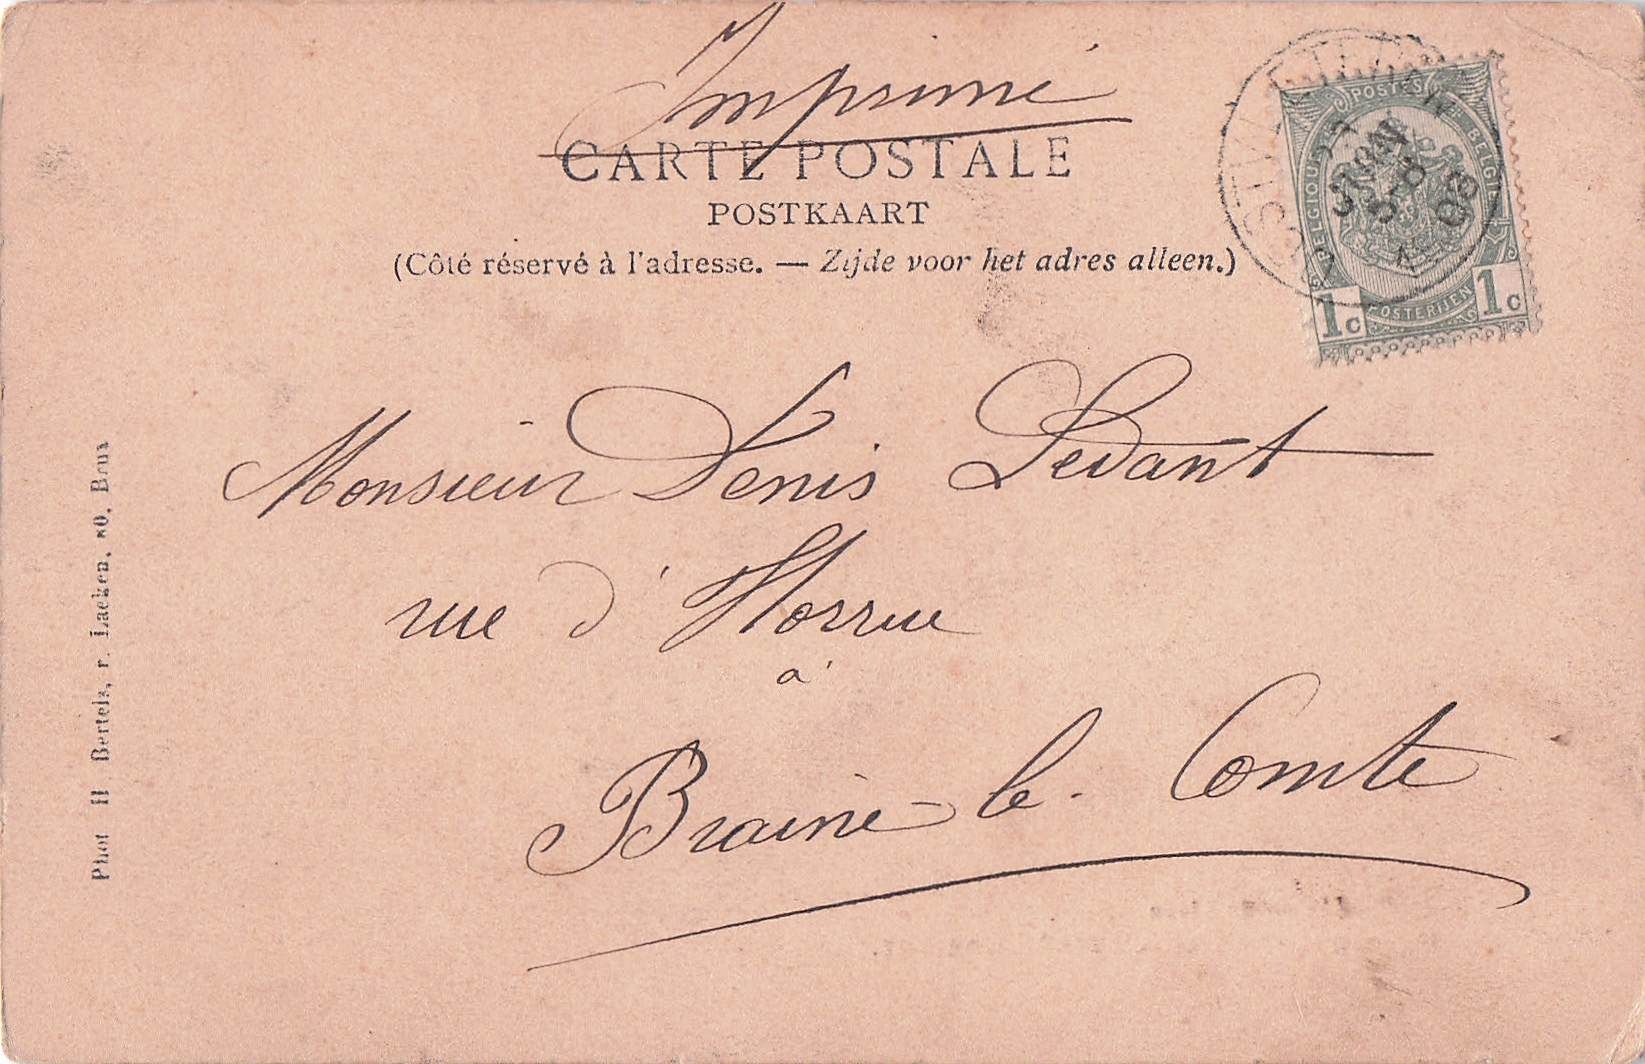 Imprimé
CARTE POSTALE
POSTKAART
(Côté réservé à l'adresse. — Zijde voor het adres alleen.)
POSTES
BELGIQUE
BELGIË
POSTERIJEN
1c 1c
JUIN
5-6
03
Monsieur Denis Levant
rue d'Horrue
à
Braine-le-Comte
Phot H Bertels, r. Laeken, 80, Brux